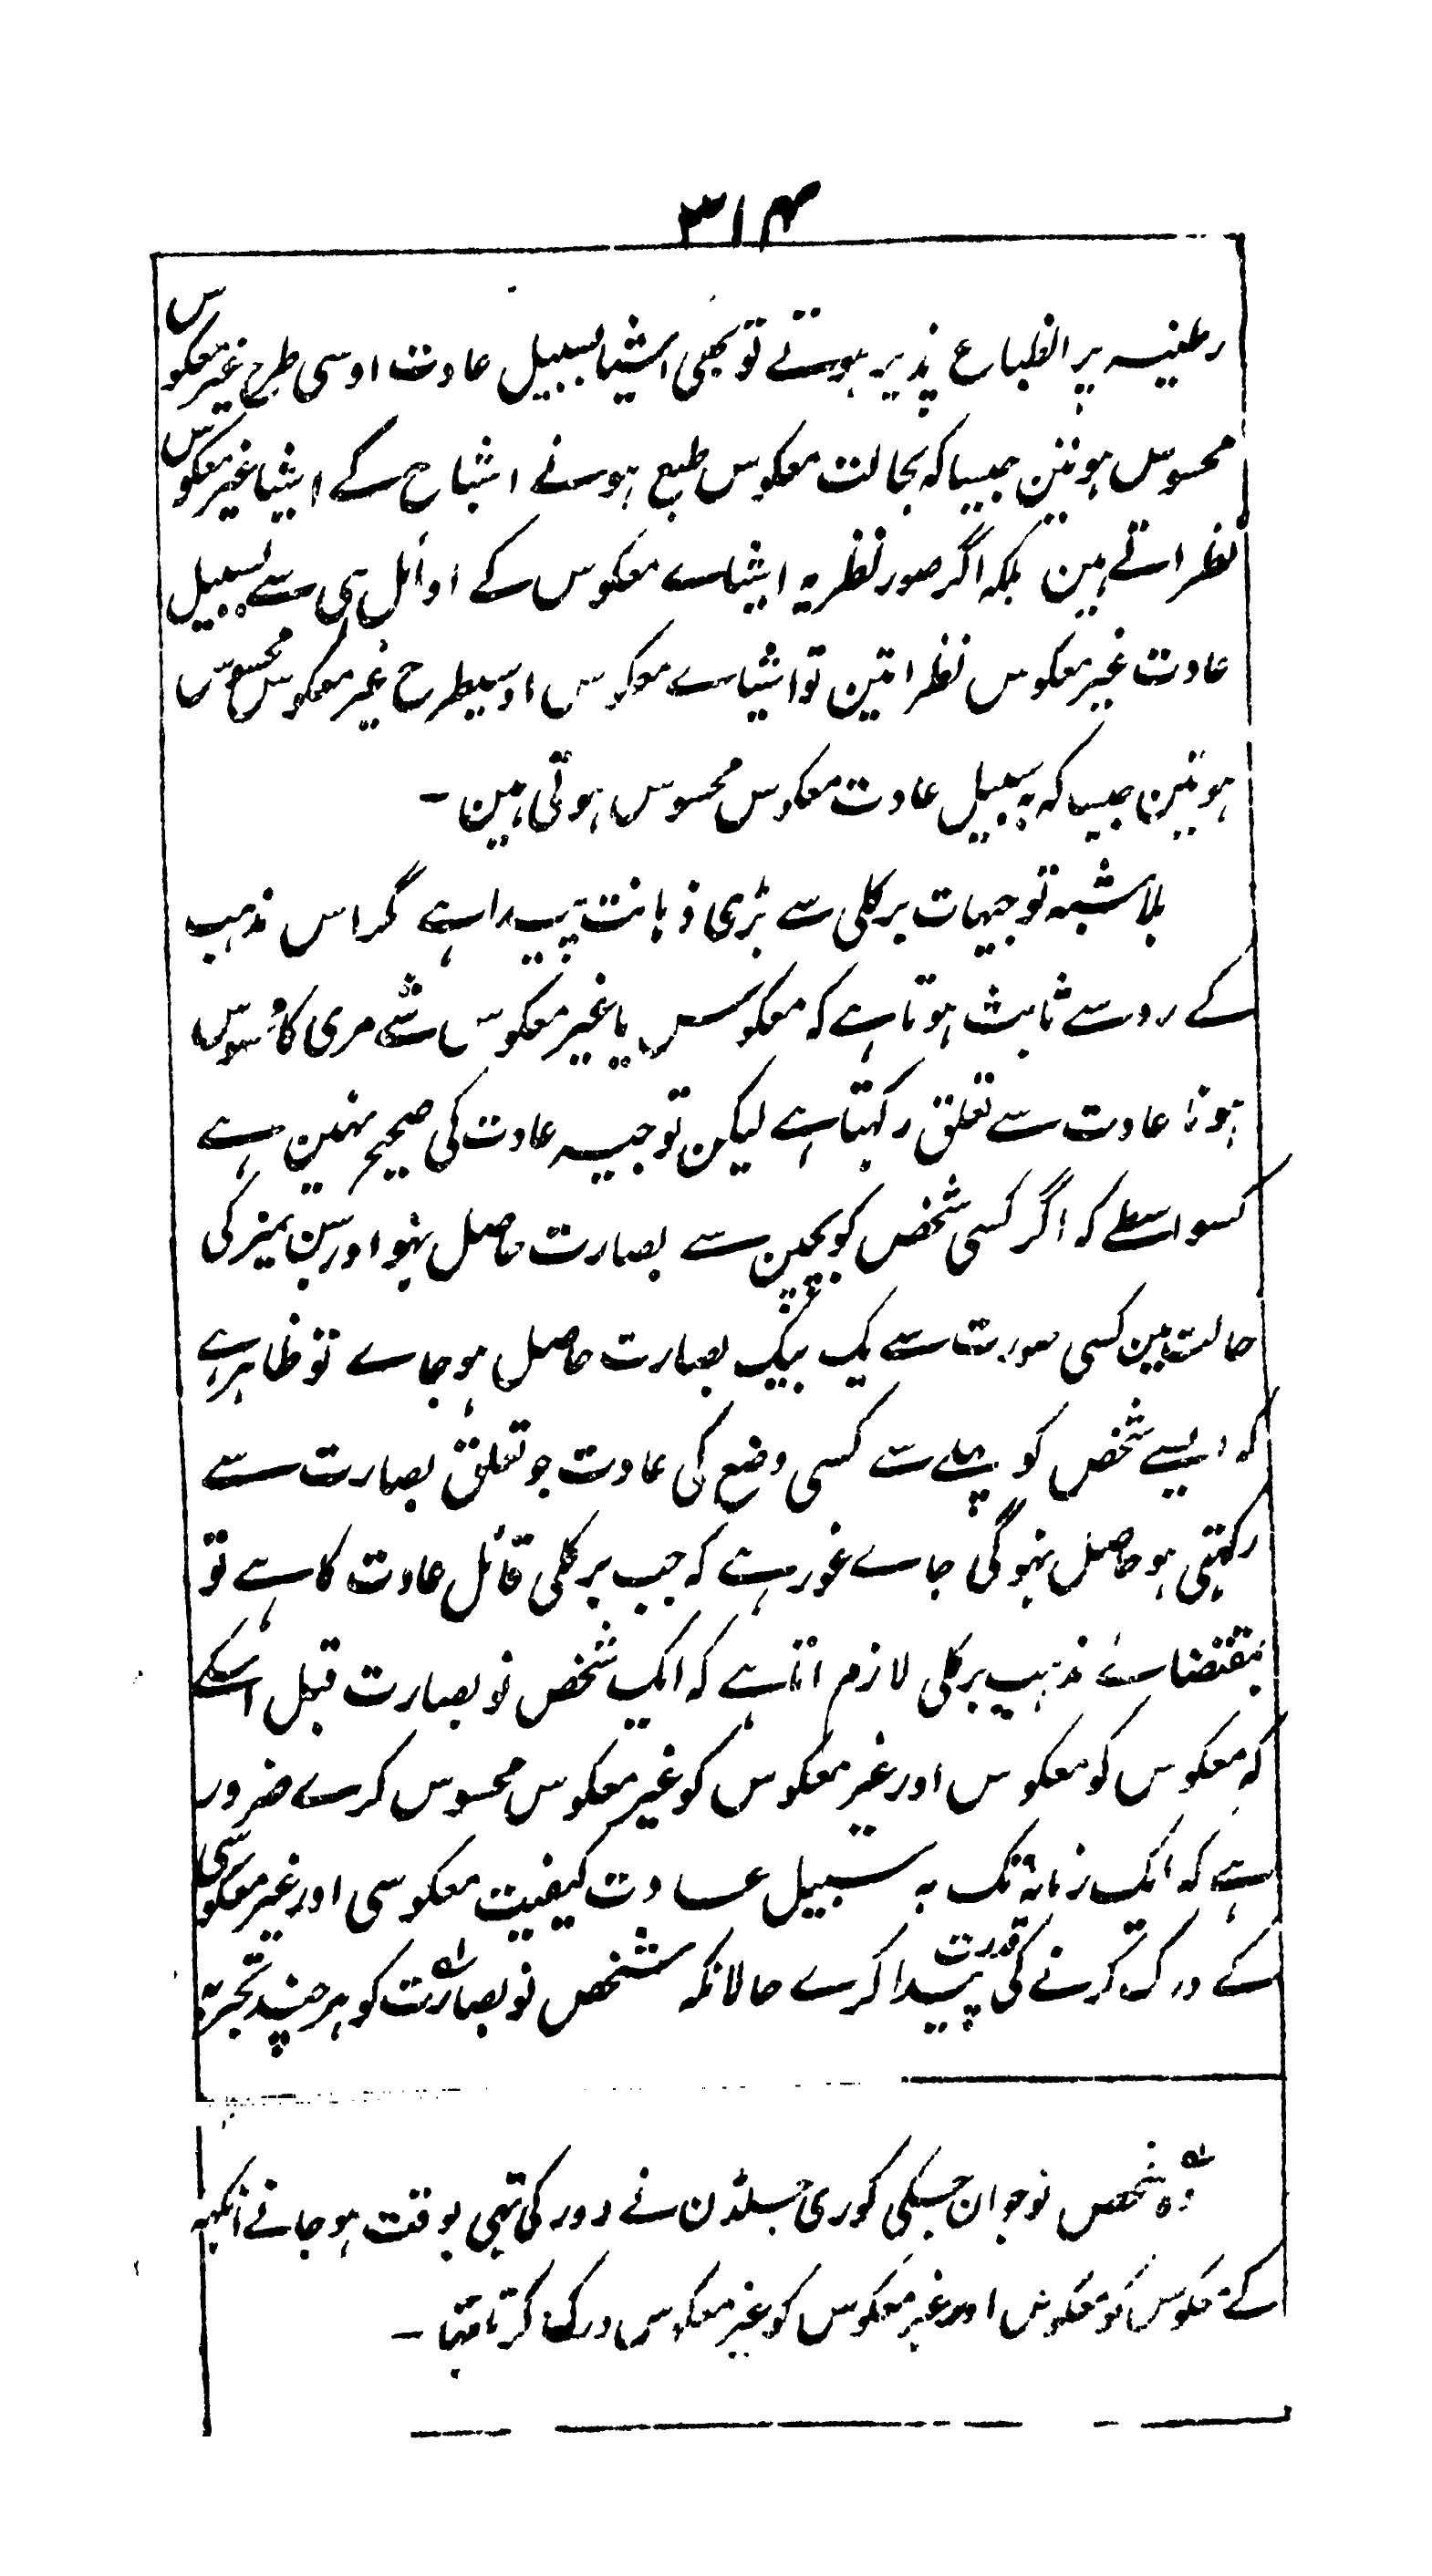 ۳۱۴
رطینیہ پر انطباع پذیر ہوتے تو بھی اشیا بسبیل عادت اوسی طرح غیر معکوس
محسوس ہوتین جیسا کہ بحالت معکوس طبع ہونے اشباح کے اشیا غیر معکوس
نظر اتے ہین بلکہ اگر صور نظریہ اشیاے معکوس کے اوائل ہی سے بسبیل
عادت غیر معکوس نظر اتین تو اشیاے معکوس اوسیطرح غیر معکوس محسوس
ہوتین جیسا کہ بہ سبیل عادت معکوس محسوس ہوتی ہین ۔
بلاشبہ توجیہات برکلی سے بڑی ذہانت پیدا ہے مگر اس مذہب
کے رو سے ثابت ہوتا ہے کہ معکوس یا غیر معکوس شے مری کا محسوس
ہونا عادت سے تعلق رکہتا ہے لیکن توجیہ عادت کی صحیح نہین ہے
کسواسطے کہ اگر کسی شخص کو بچپن سے بصارت حاصل نہو اور سن تمیز کی
حالت مین کسی صورت سے یک بیک بصارت حاصل ہو جاے تو ظاہر ہے
کہ ایسے شخص کو پہلے سے کسی وضع کی عادت جو تعلق بصارت سے
رکہتی ہو حاصل نہوگی جاے غور ہے کہ جب برکلی قائل عادت کا ہے تو
بمقتضاے مذہب برکلی لازم اتا ہے کہ ایک شخص نو بصارت قبل اسکے
کہ معکوس کو معکوس اور غیر معکوس کو غیر معکوس محسوس کرے ضرور
ہے کہ ایک زمانہ تک بہ سبیل عادت کیفیت معکوسی اور غیر معکوسی
کے درک کرنے کی قدرت پیدا کرے حالانکہ شخص نو بصارت کو ہر چند تجربہ
وہ شخص نوجوان جسکی کوری جسلڈن نے دور کی تہی بوقت ہو جانے انکہہ
کے معکوس کو معکوس اور غیر معکوس کو غیر معکوس درک کرتا تہا ۔